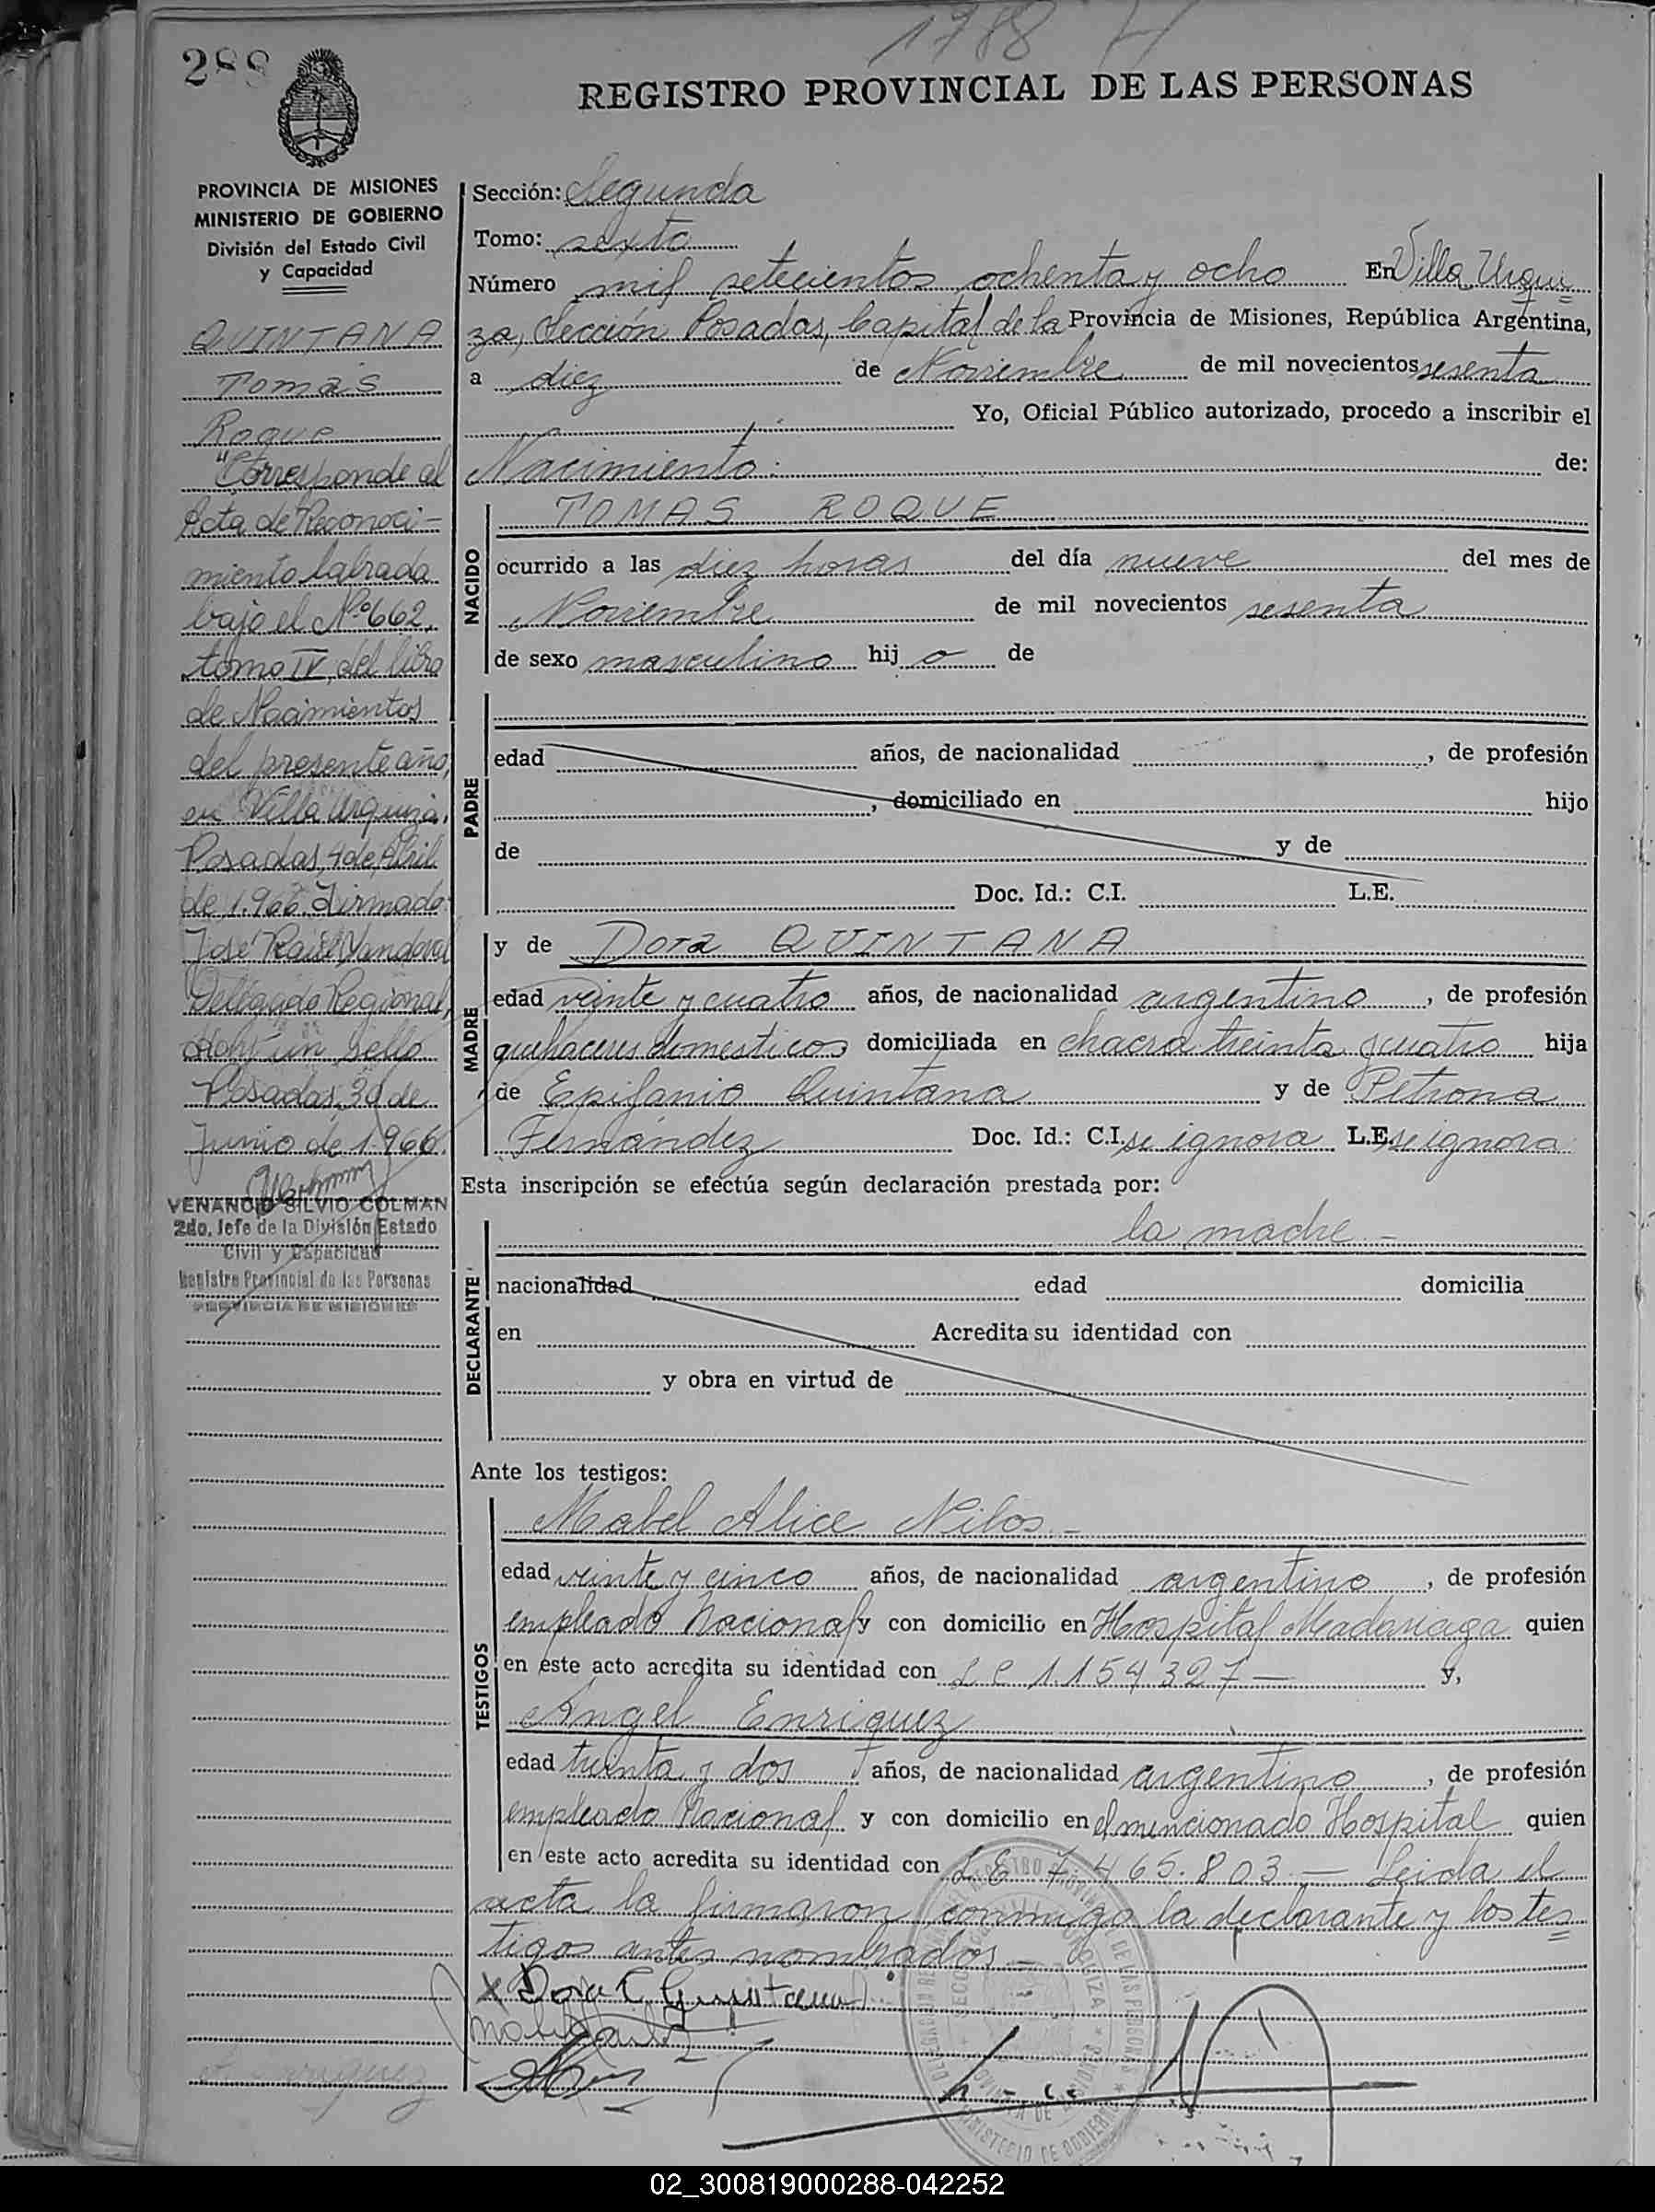 1788
288
REGISTRO PROVINCIAL DE LAS PERSONAS
PROVINCIA DE MISIONES
MINISTERIO DE GOBIERNO
División del Estado Civil
y Capacidad
QUINTANA
Tomás
Roque
"Corresponde al
Acta de Reconoci-
miento labrada
bajo el Nº 662,
tomo IV, del libro
de Nacimientos
del presente año,
en Villa Urquiza.
Posadas, 4 de Abril
de 1.966. Firmado:
José Raúl
Delegado Regional,
un sello
Posadas, 30 de
Junio de 1.966.
VENANCIO SILVIO COLMAN
2do. Jefe de la División Estado
Civil y Capacidad
Registro Provincial de las Personas
PROVINCIA DE MISIONES
Sección: Segunda
Tomo: sexto
Número mil setecientos ochenta y ocho En Villa Urqui=
za, Sección Posadas, Capital de la Provincia de Misiones, República Argentina,
a diez de Noviembre de mil novecientos sesenta
Yo, Oficial Público autorizado, procedo a inscribir el
Nacimiento: de:
NACIDO
TOMAS ROQUE
ocurrido a las diez horas del día nueve del mes de
Noviembre de mil novecientos sesenta
de sexo masculino hij o de
PADRE
edad años, de nacionalidad , de profesión
, domiciliado en hijo
de y de
Doc. Id.: C.I. L.E.
MADRE
y de Dora QUINTANA
edad veinte y cuatro años, de nacionalidad argentino , de profesión
quehaceres domesticos domiciliada en chacra treinta y cuatro hija
de Epifanio Quintana y de Petrona
Fernández Doc. Id.: C.I. se ignora L.E. se ignora
Esta inscripción se efectúa según declaración prestada por:
DECLARANTE
la madre -
nacionalidad edad domicilia
en Acredita su identidad con
y obra en virtud de
Ante los testigos:
TESTIGOS
Mabel Alice Nilos -
edad veinte y cinco años, de nacionalidad argentino , de profesión
empleado Nacional y con domicilio en Hospital Madariaga quien
en este acto acredita su identidad con L C 1.154.327 - y,
Angel Enriquez
edad treinta y dos años, de nacionalidad argentino , de profesión
empleado Nacional y con domicilio en el mencionado Hospital quien
en este acto acredita su identidad con L E 7.465.803 - Leida el
acta la firmaron conmigo la declarante y los tes=
tigos antes nombrados -
x Dora Quintana
02_300819000288-042252